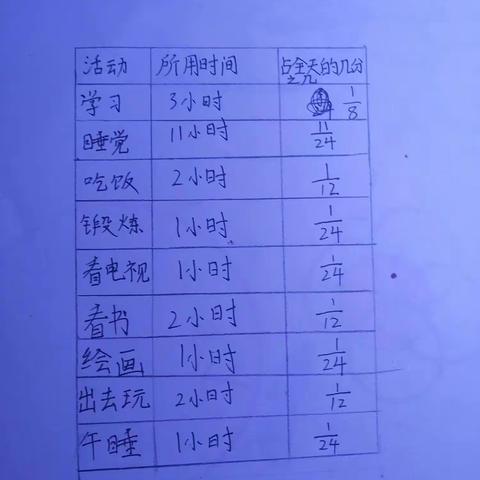 活动 所用时间 占全天的几分之几
学习 3小时 1/8
睡觉 11小时 11/24
吃饭 2小时 1/12
锻炼 1小时 1/24
看电视 1小时 1/24
看书 2小时 1/12
绘画 1小时 1/24
出去玩 2小时 1/12
午睡 1小时 1/24